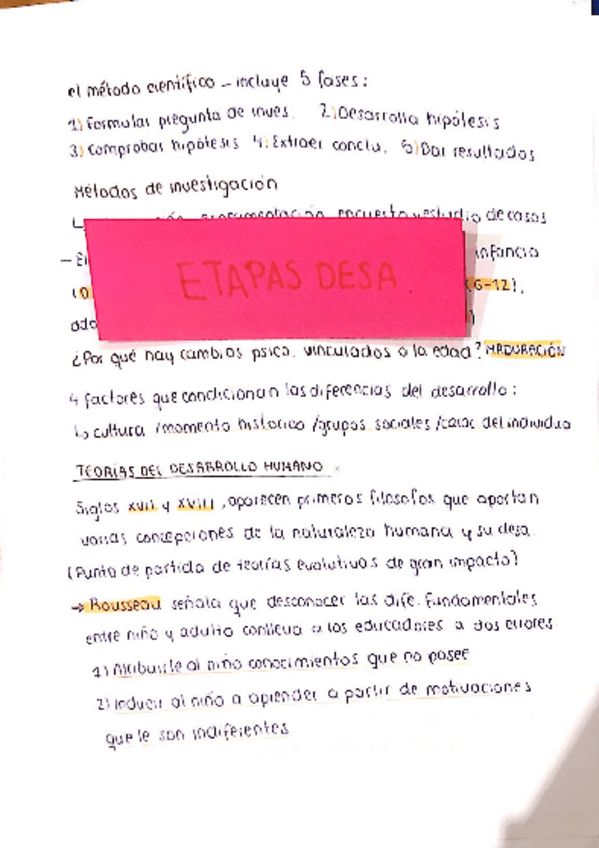 el método científico – incluye 5 fases:
1) Formular pregunta de inves. 2) Desarrolla hipótesis
3) comprobar hipótesis 4) Extraer conclu. 5) Dar resultados
Métodos de investigación
encuesta y estudio de casos
infancia
ETAPAS DESA.
(6-12),
¿Por qué hay cambios psico. vinculados a la edad? MADURACIÓN
4 factores que condicionan las diferencias del desarrollo:
↳ cultura /momento histórico /grupos sociales /carac del individuo
TEORÍAS DEL DESARROLLO HUMANO
Siglos XVII y XVIII, aparecen primeros filósofos que aportan
varias concepciones de la naturaleza humana y su desa.
(Punto de partida de teorías evolutivas de gran impacto)
→ Rousseau señala que desconocer las dife. fundamentales
entre niño y adulto conlleva a los educadores a dos errores
1) Atribuirle al niño conocimientos que no posee
2) Inducir al niño a aprender a partir de motivaciones
que le son indiferentes